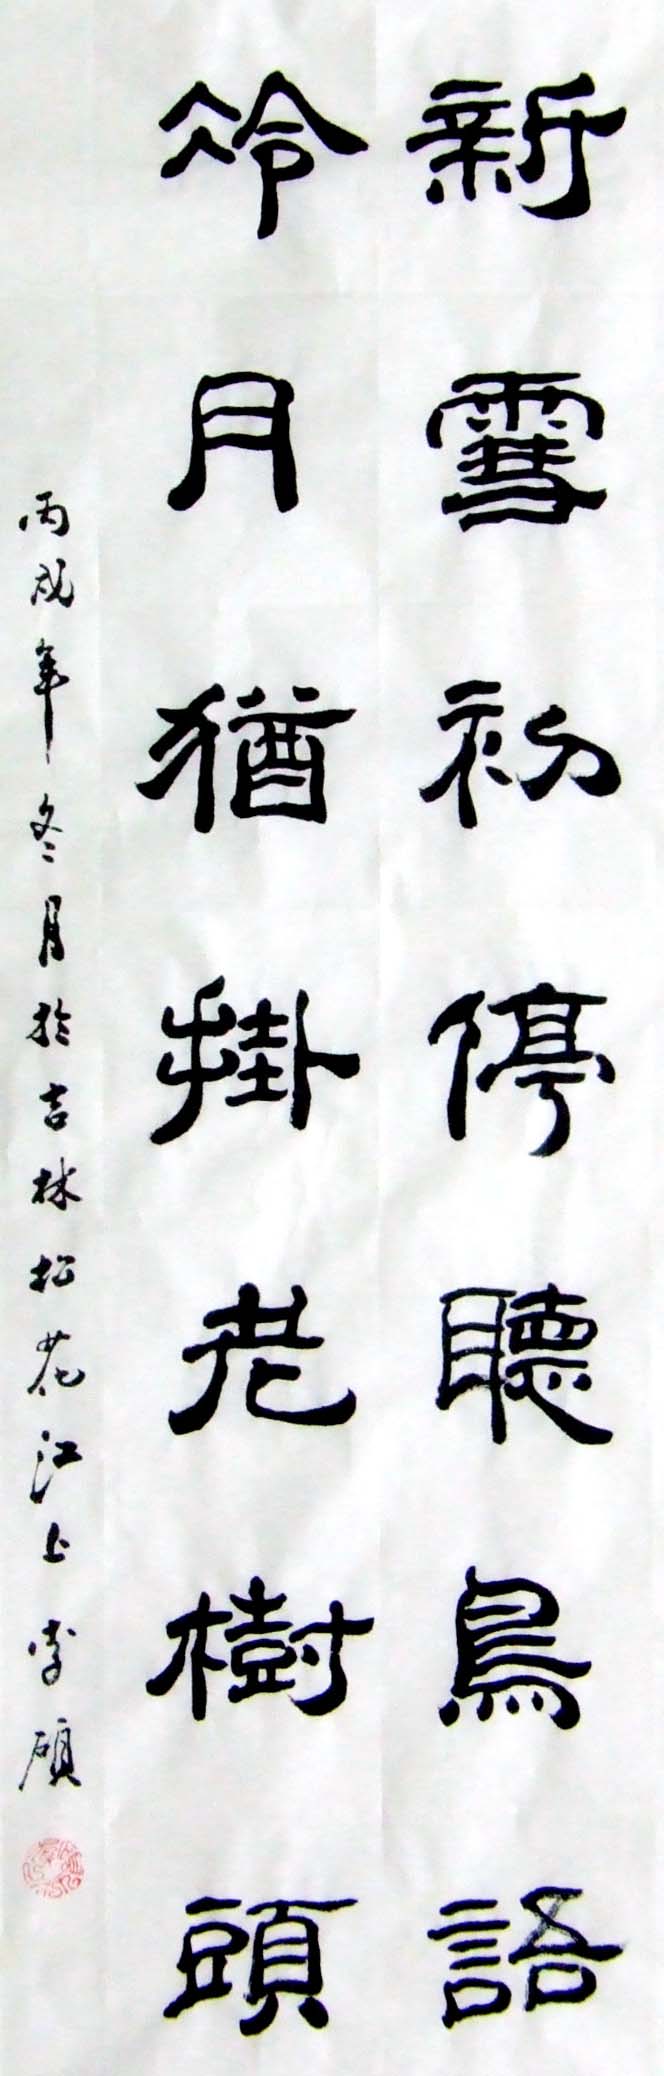 新雪初停聽鳥語
冷月猶掛老樹頭
丙戌年冬月於吉林松花江上李碩